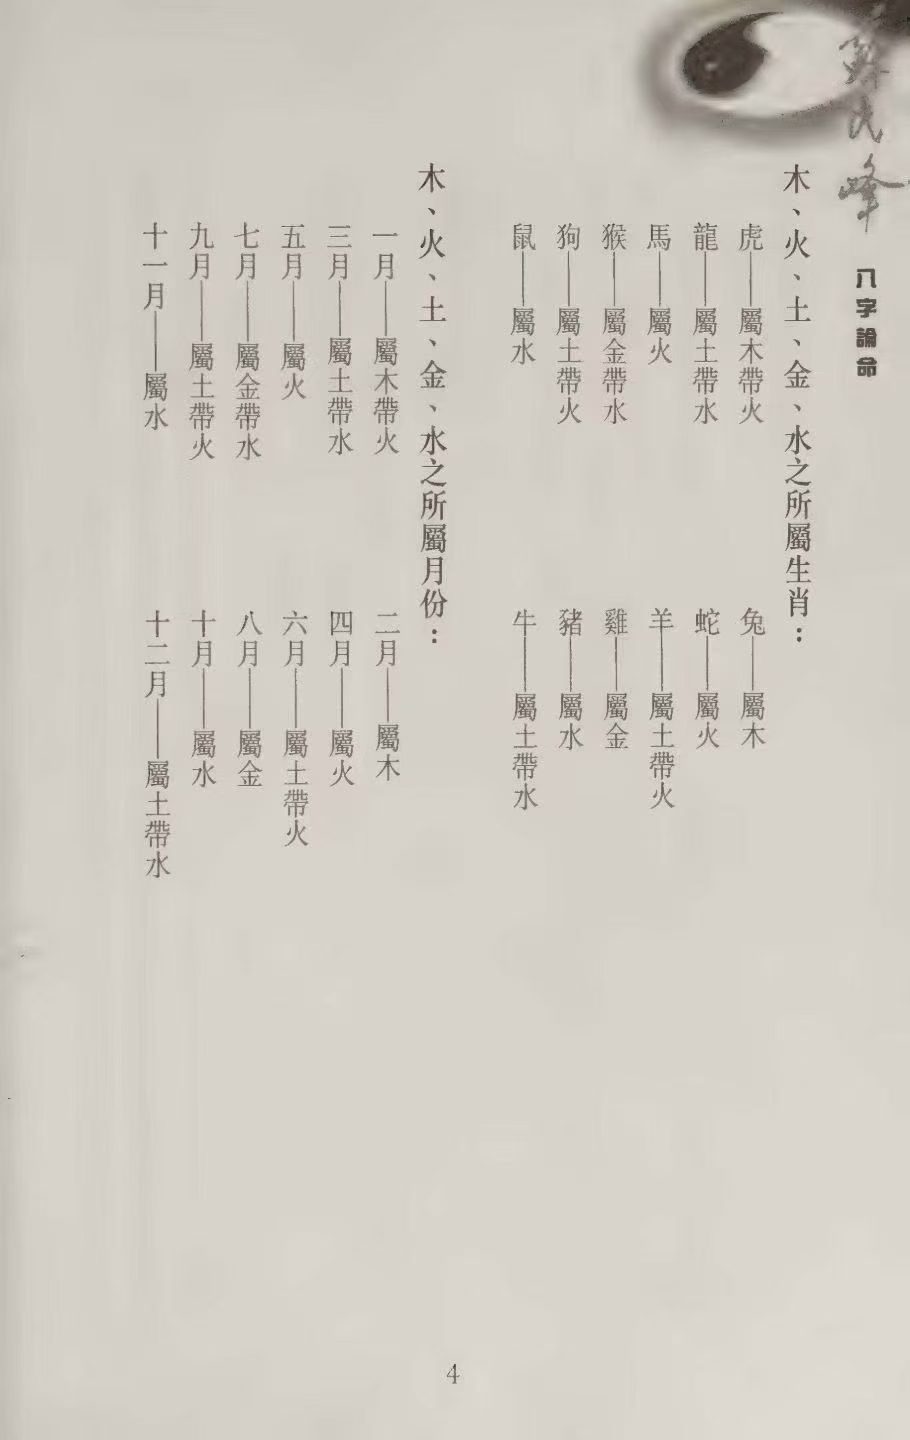 蘇民峰
八字論命
木、火、土、金、水之所屬生肖：
虎——屬木帶火
兔——屬木
龍——屬土帶水
蛇——屬火
馬——屬火
羊——屬土帶火
猴——屬金帶水
雞——屬金
狗——屬土帶火
豬——屬水
鼠——屬水
牛——屬土帶水
木、火、土、金、水之所屬月份：
一月——屬木帶火
二月——屬木
三月——屬土帶水
四月——屬火
五月——屬火
六月——屬土帶火
七月——屬金帶水
八月——屬金
九月——屬土帶火
十月——屬水
十一月——屬水
十二月——屬土帶水
4